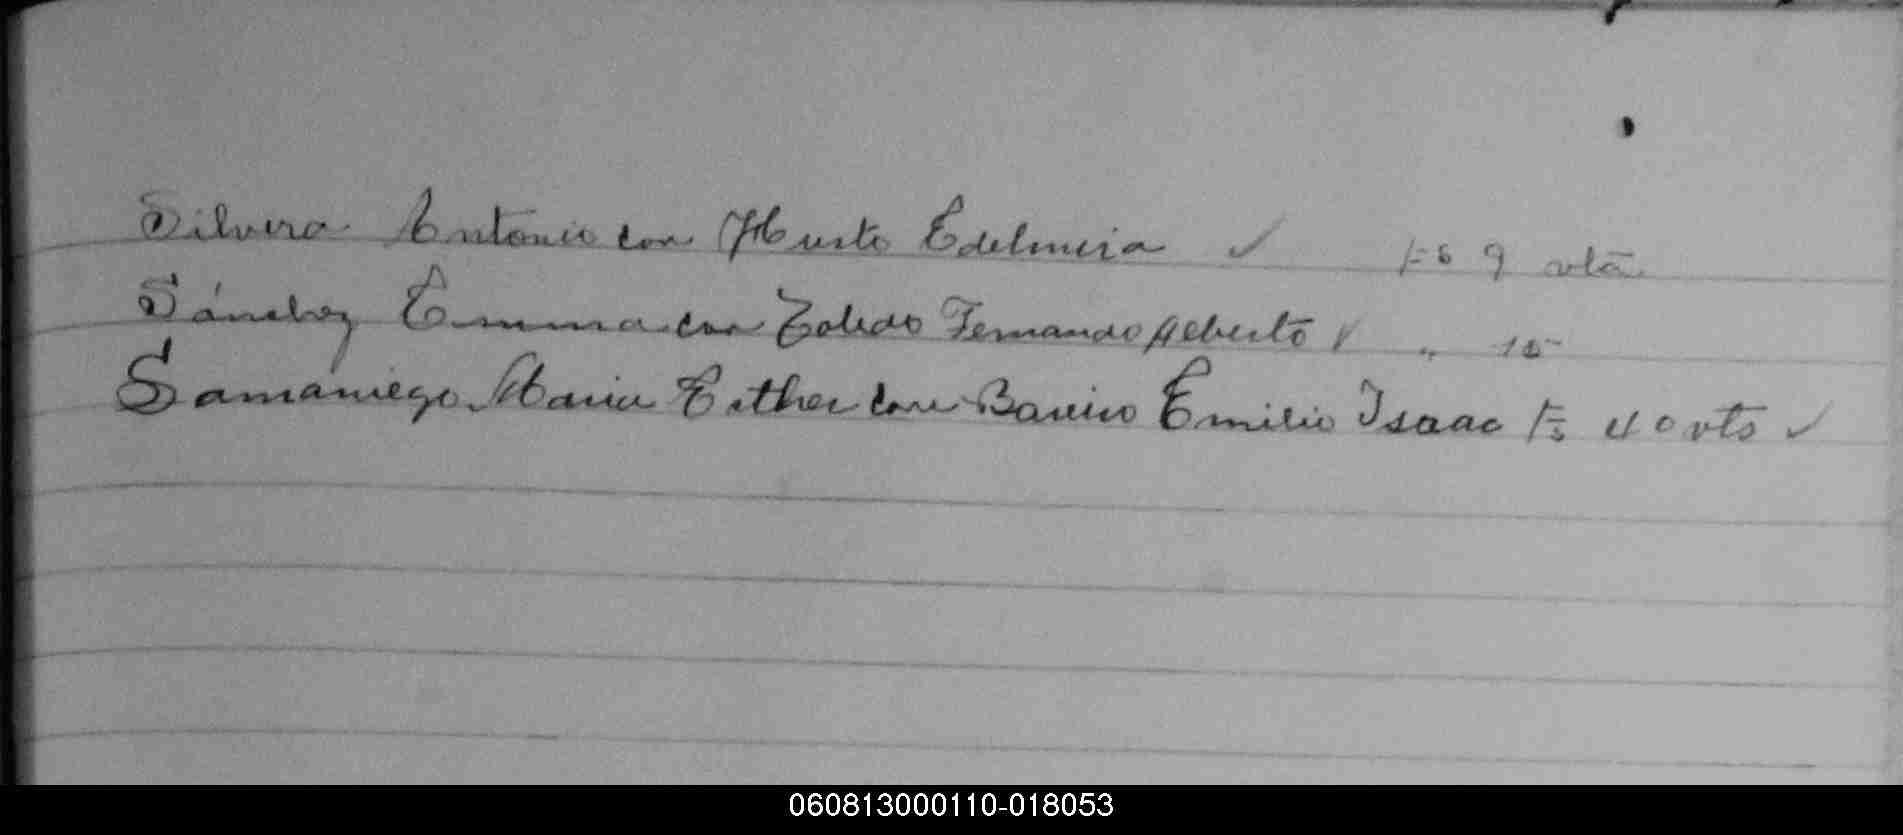 Silvera Antonio con Husto Edelmira ✓ Fs 9 vta
Sánchez Emma con Toledo Fernando Alberto ✓ " 15
Samaniego Maria Esther con Bareiro Emilio Isaac Fs 40 vto ✓
060813000110-018053